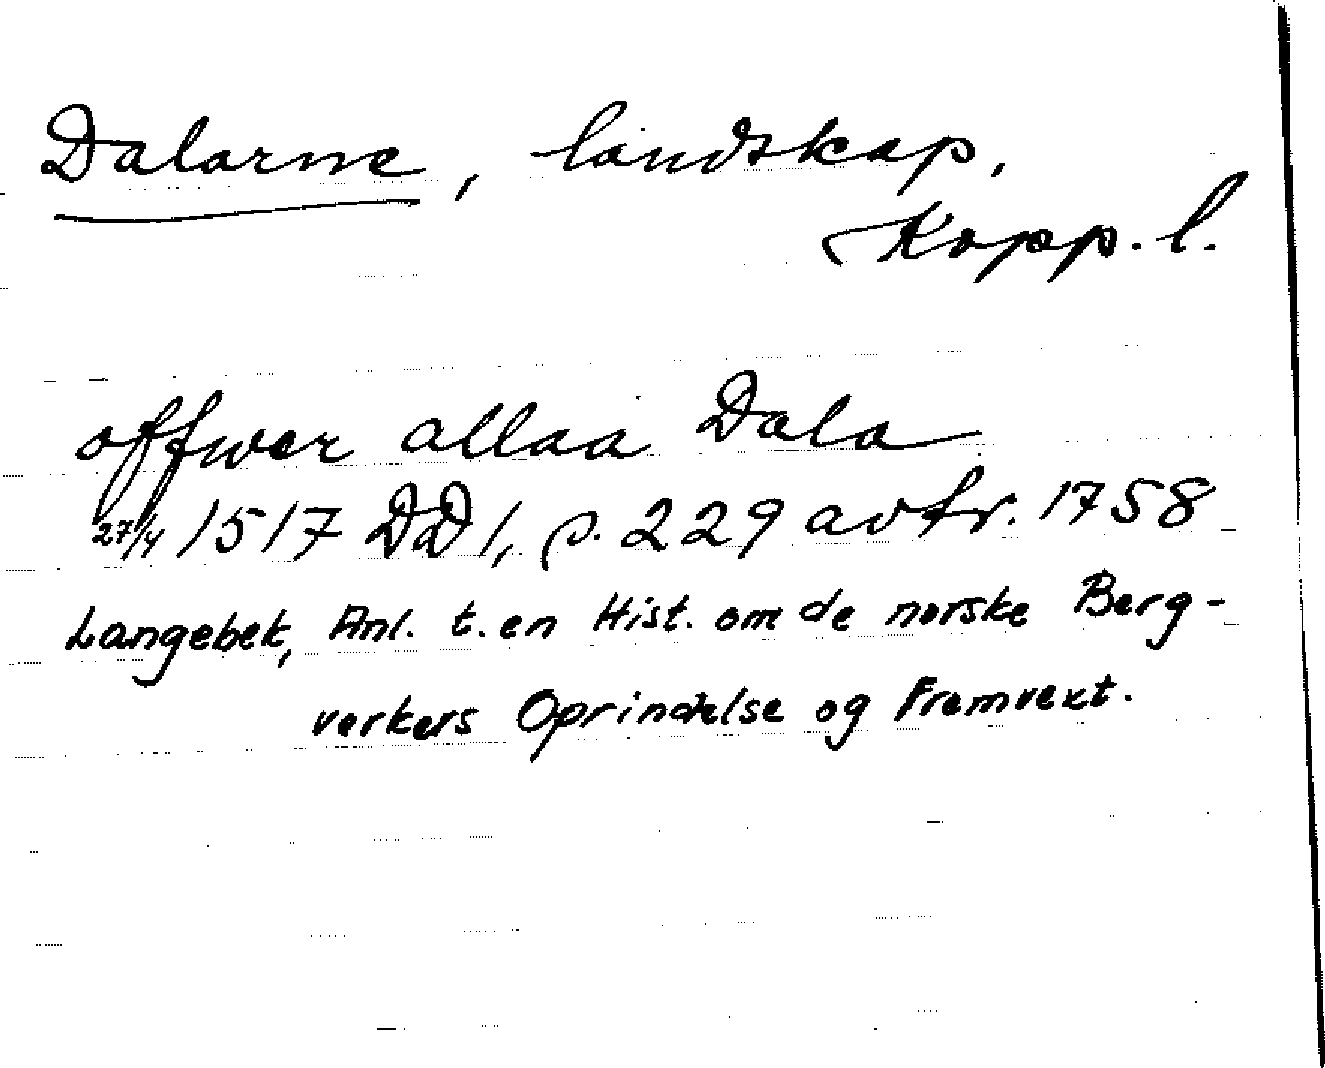 Dalarne, landskap,
Kopp. l.
offwer allaa Dala
27/4 1517 DD 1, p. 229 avskr. 1758
Langebek, Anl. t. en Hist. om de norske Berg-
verkers Oprindelse og Fremvext.